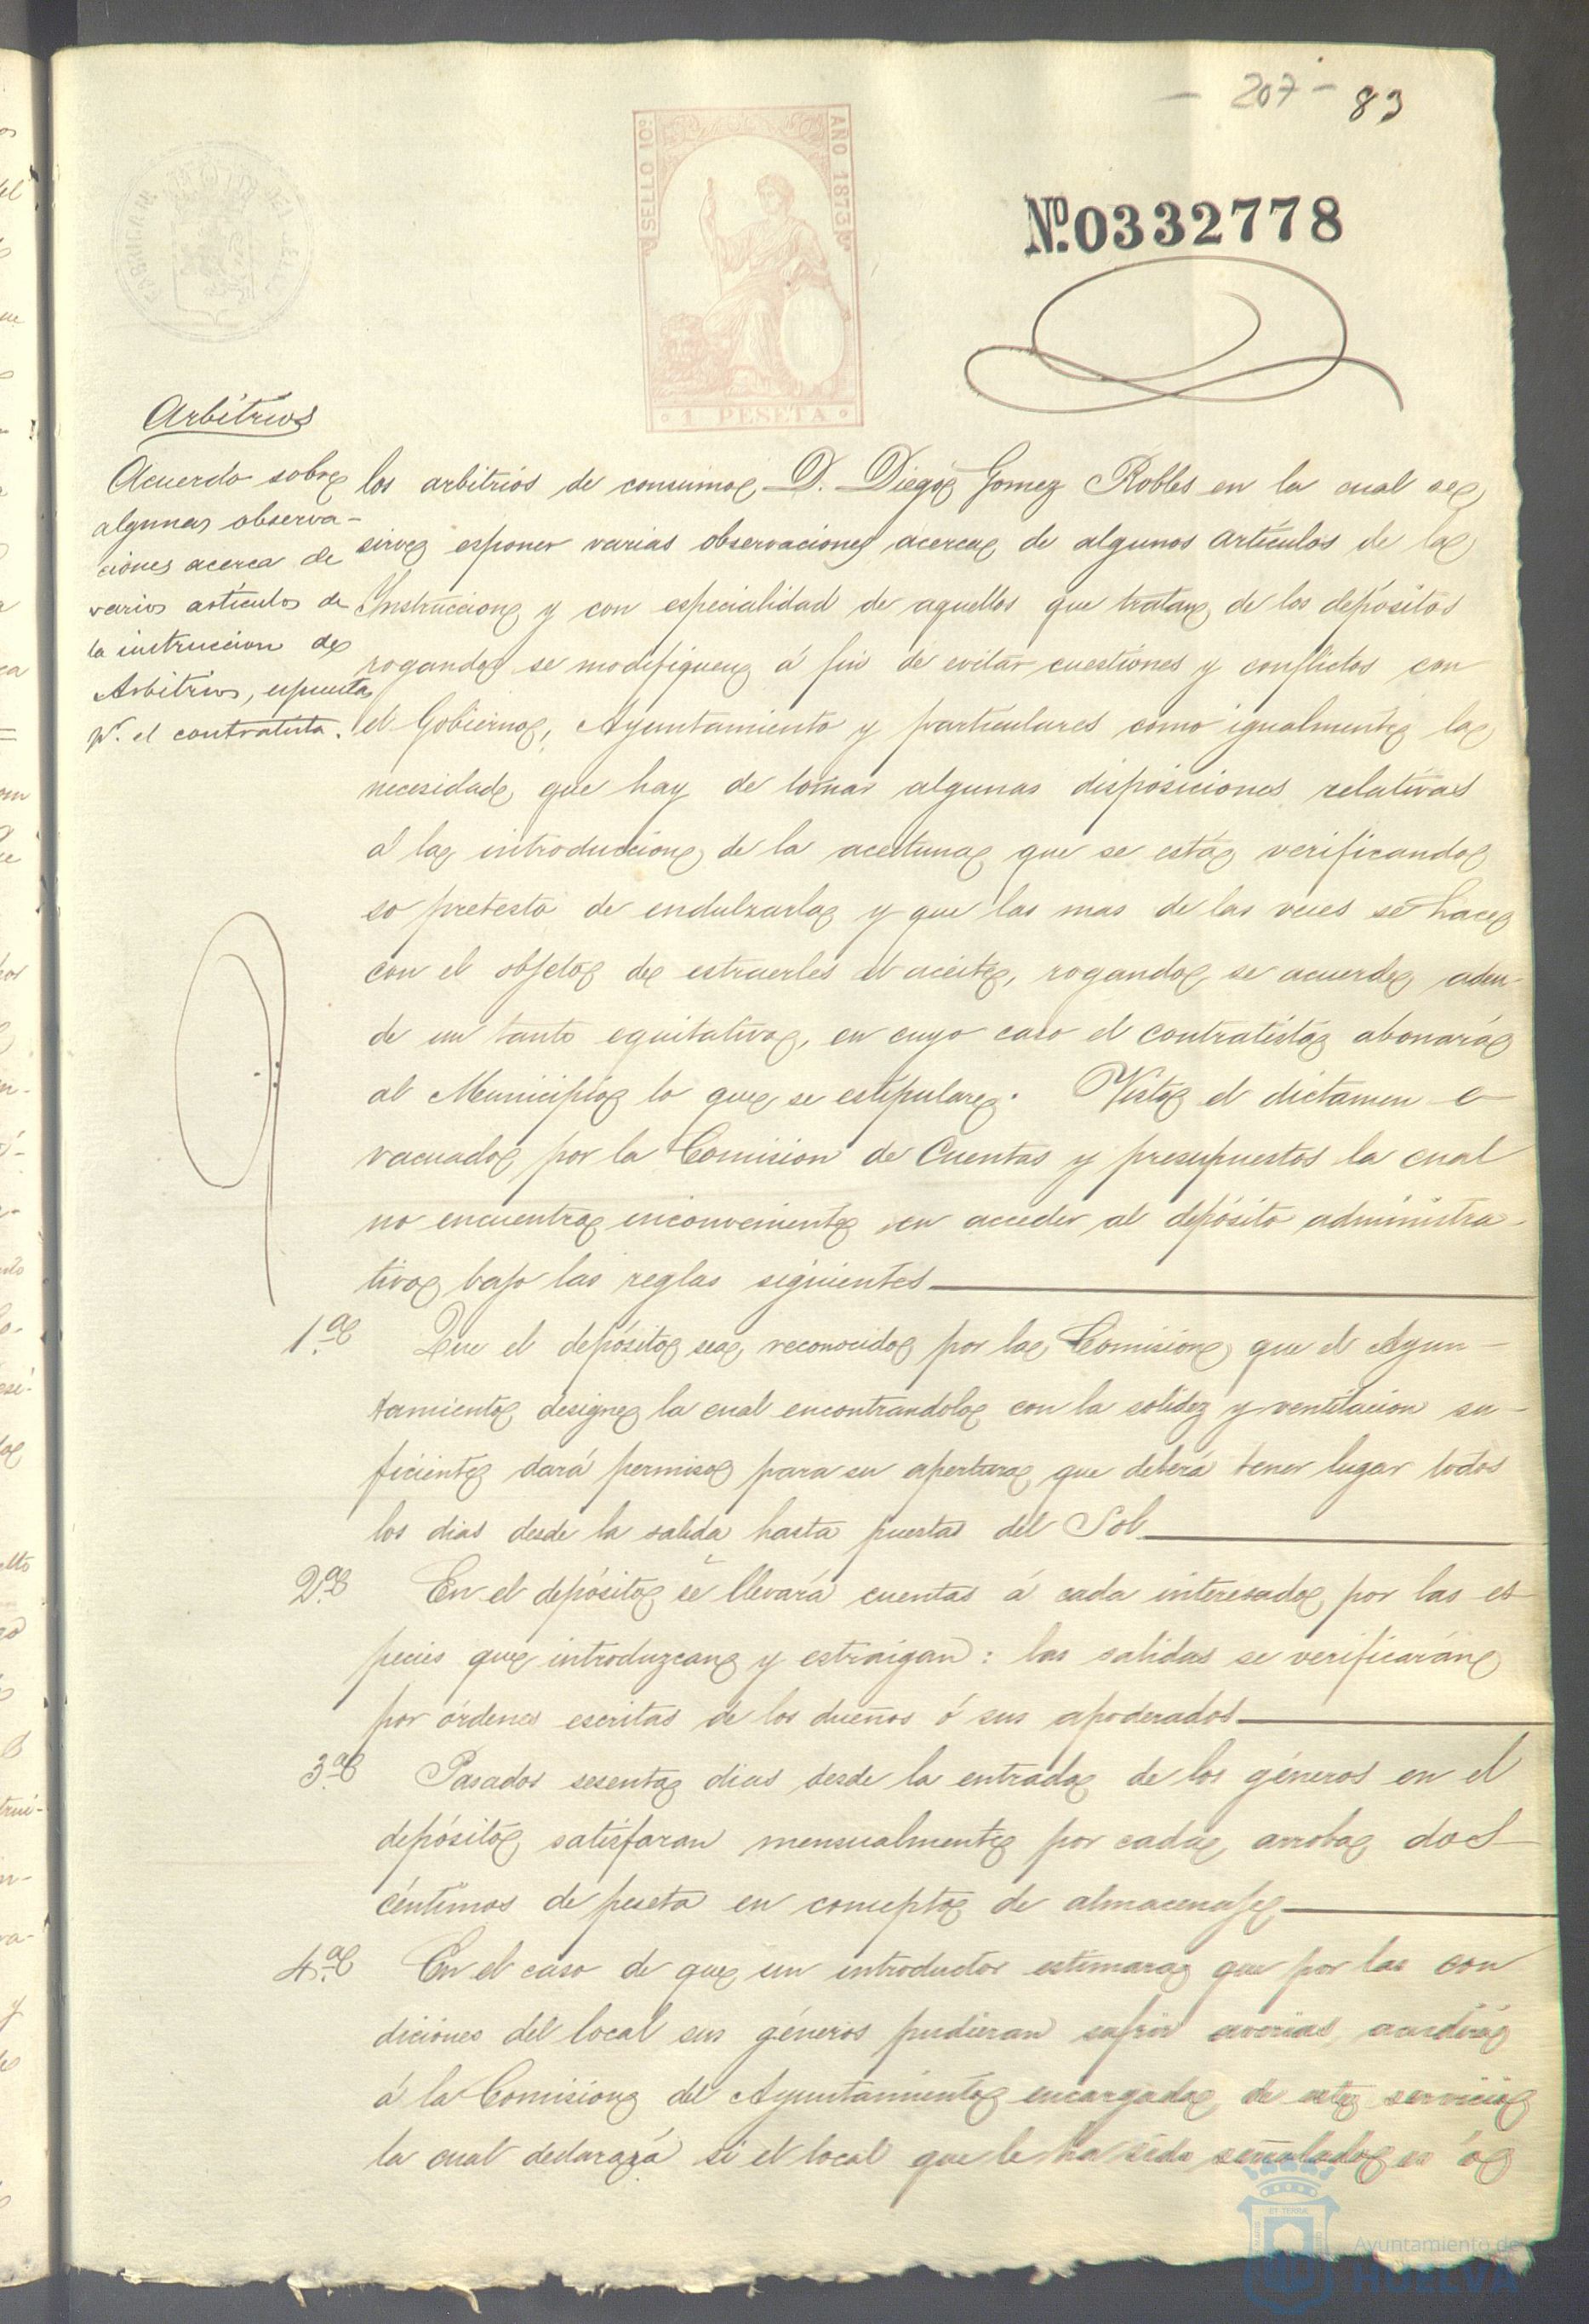 - 207 - 83
SELLO 10º
AÑO 1873
1 PESETA
Nº 0332778
Arbitrios
Acuerdo sobre
algunas observa-
ciones acerca de
varios artículos de
la instruccion de
Arbitrios, espuesta
pr. el contratista.
los arbitrios de consumo D. Diego Gomez Robles en la cual se
sirve esponer varias observaciones acerca de algunos artículos de la
Instruccion y con especialidad de aquellos que tratan de los depósitos
rogando se modifiquen á fin de evitar cuestiones y conflictos con
el Gobierno, Ayuntamiento y particulares como igualmente la
necesidad que hay de tomar algunas disposiciones relativas
á la introduccion de la aceituna que se está verificando
so pretesto de endulzarla y que las mas de las veces se hace
con el objeto de estraerles el aceite, rogando se acuerde aden-
de un tanto equitativo, en cuyo caso el contratista abonará
al Municipio lo que se estipulare. Visto el dictamen e
vacuado por la Comision de Cuentas y presupuestos la cual
no encuentra inconveniente en acceder al depósito administra-
tivo bajo las reglas siguientes
1.ª Que el depósito sea reconocido por la Comision que el Ayun-
tamiento designe la cual encontrandolo con la solidez y ventilacion su-
ficiente dará permiso para su apertura que deberá tener lugar todos
los dias desde la salida hasta puestas del Sol
2.ª En el depósito se llevará cuentas á cada interesado por las es
pecies que introduzcan y estraigan: las salidas se verificarán
por órdenes escritas de los dueños ó sus apoderados
3.ª Pasados sesenta dias desde la entrada de los géneros en el
depósito satisfaran mensualmente por cada arroba dos
céntimos de peseta en concepto de almacenaje
4.ª En el caso de que un introductor estimara que por las con
diciones del local sus géneros pudieran sufrir averias acudirá
á la Comision del Ayuntamiento encargada de este servicio
la cual declarará si el local que le ha sido señalado es ó
Ayuntamiento de
HUELVA